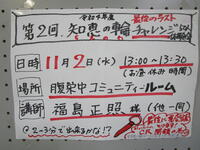 令和4年度
第2回 知恵の輪 チャレンジ
日時 11月2日(水) 13:00~13:30
(お昼休み時間)
場所 腹栄中コミュニティールーム
講師 福島正照 様(他一同)
2~3分で出来るかな!?